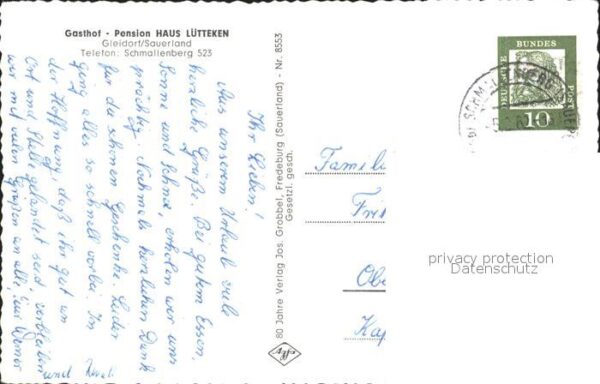 Gasthof · Pension HAUS LÜTTEKEN
Gleidorf/Sauerland
Telefon: Schmallenberg 523
Ihr Lieben!
Aus unserem Urlaub viele
herzliche Grüße. Bei gutem Essen,
Sonne und Schnee, erholen wir uns
prächtig. Nochmals herzlichen Dank
für die schönen Geschenke. Leider
ging alles so schnell vorbei. In
der Hoffnung, daß ihr gut an
Ort und Stelle gelandet seid, verbleiben
wir mit vielen Grüßen an alle, Eure Werner
und
80 Jahre Verlag Jos. Grobbel, Fredeburg (Sauerland) - Nr. 8553
Gesetzl. gesch.
Agfa
DEUTSCHE BUNDESPOST
10
SCHMALLENBERG
Famil
Fri
Obe
Ka
privacy protection
Datenschutz